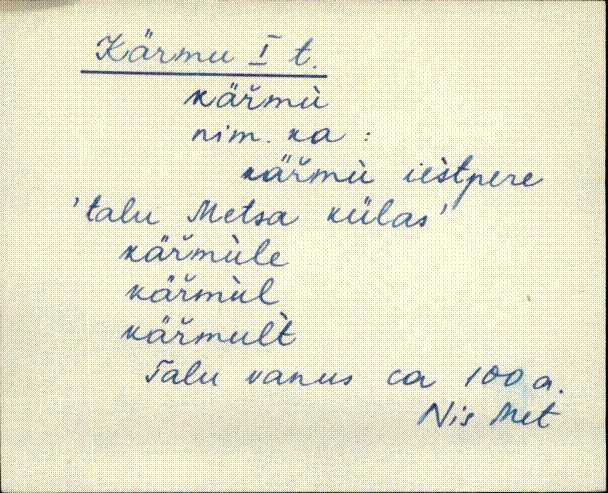 Kärmu I t.
kär̆mù
nim. ka :
kär̆mù ièstpere
'talu Metsa külas'
kär̆mùle
kär̆mùl
kär̆mult̀
Talu vanus ca 100 a.
Nis Met